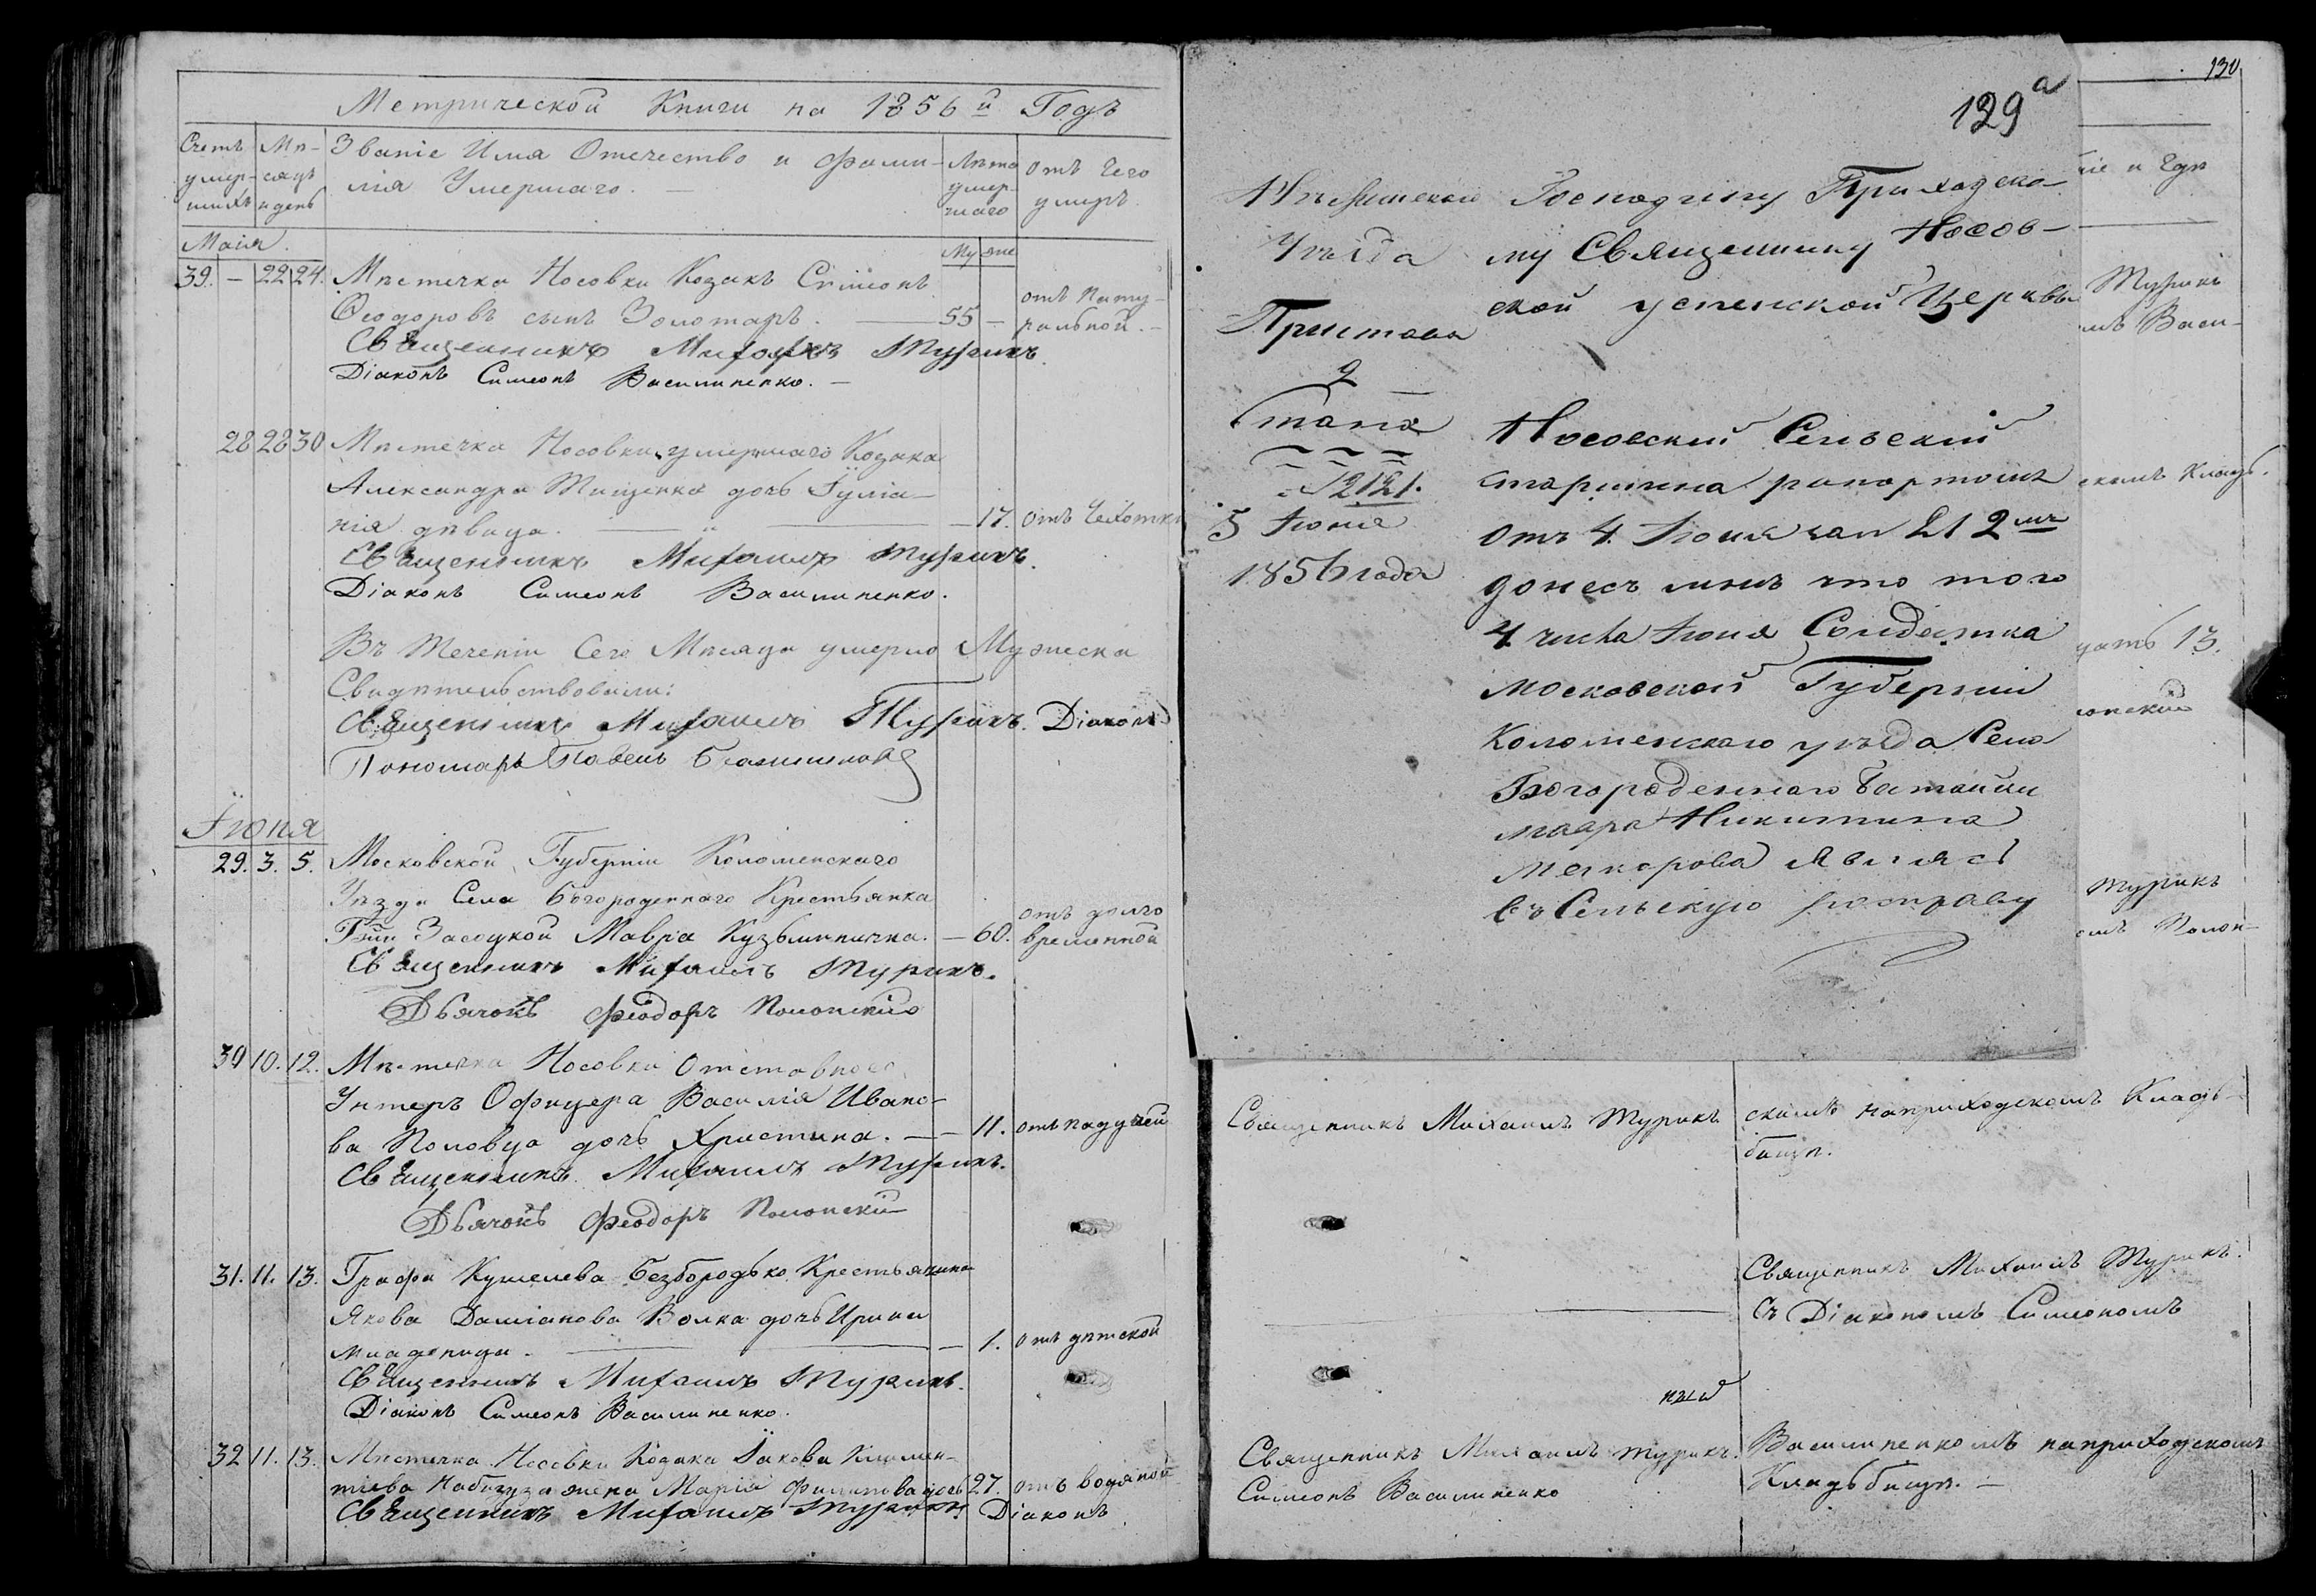 Метрической Книги на 1856й Годъ
Счетъ умер- шихъ
Мѣ- сяцъ и день
Званіе Имя Отечество и фами-
лія Умершаго. —
Лѣта умер- шаго
отъ Чего умеръ.
Маія.
Му же
39. — 22 24. Мѣстечка Носовки Козакъ Сѵмеонъ
Ѳеодоровъ сынъ Золотарь. — 55 — отъ Нату- ральной. —
Священникъ Михаилъ Турикъ.
Діаконъ Симеонъ Василипенко. —
28 28 30 Мѣстечка Носовки умершаго Козака
Александра Тищенка дочь Іуліа-
нія дѣвица. — " — 17. отъ Чахотки
Священникъ Михаилъ Турикъ.
Діаконъ Симеонъ Василипенко.
Въ Теченіи Сего Мѣсяца умерло Мужеска
Свидѣтельствовали:
Священникъ Михаилъ Турикъ. Діаконъ
Пономарь Павелъ
Іюня
29. 3. 5. Московской Губерніи Коломенскаго
Уѣзда Села Богороденнаго Крестьянка
Засецкой Мавра Кузьминична. — 60. отъ долго временной
Священникъ Михаилъ Турикъ.
Дьячокъ Феодоръ Полонскій
30 10. 12. Мѣстечка Носовки Отставнаго
Унтеръ Офицера Василія Ивано-
ва Половца дочь Христина. — — 11. отъ падучей
Священникъ Михаилъ Турикъ.
Дьячокъ Феодоръ Полонскій
31. 11. 13. Графа Кушелева Безбородько Крестьянина
Якова Даміанова Волка дочь Ирина
младеница. — — 1. отъ дѣтской
Священникъ Михаилъ Турикъ.
Діаконъ Симеонъ Василипенко.
32 11. 13. Мѣстечка Носовки Козака Іакова Климен-
тіева жена Марія Филипова дочь 27. отъ водяной
Священникъ Михаилъ Турикъ Діаконъ
129а
Нѣжинскаго
Уѣзда
Пристава
2
Стана
№ 2121.
5 Іюня
1856 года
Господину Приходско-
му Священнику Носов-
ской успенской Церквы
Носовскій Сельскій
старшина рапортомъ
отъ 4 Іюня за № 212мъ
донесъ мнѣ что того
4 числа Іюня Солдатка
Московской Губерніи
Коломенскаго уѣзда Села
Богороденнаго
мавра Никитина
явиясь
въ Сельскую росправу
130
ніе и Гдѣ
Турикъ
мъ Васи-
скомъ Кладь-
цать 13.
лонскій
Турикъ
омъ Полон-
Священникъ Михаилъ Турикъ
скимъ наприходскомъ Кладь-
бищѣ.
Священникъ Михаилъ Турикъ.
Съ Діакономъ Симеономъ
Священникъ Михаилъ Турикъ.
Симеонъ Василипенко
Василипенкомъ наприходскомъ
Кладьбищѣ. —